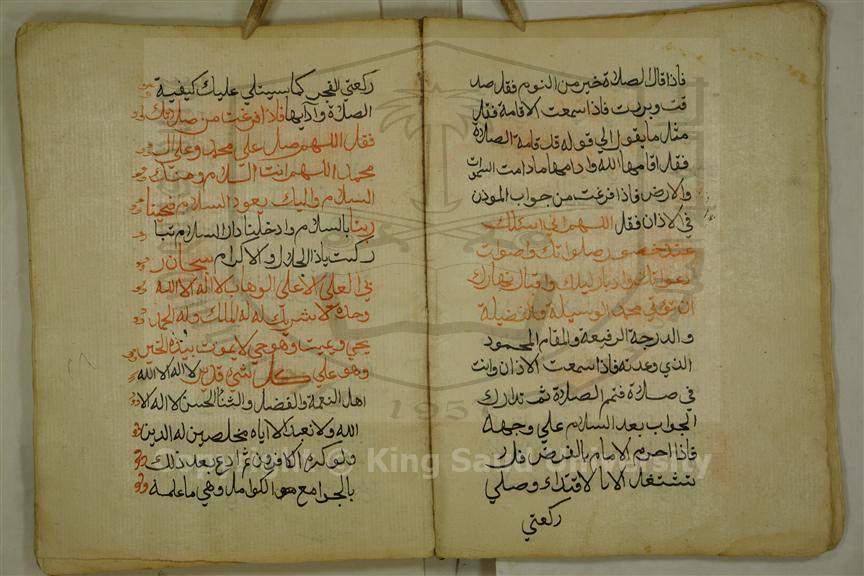 فاذا قال الصلاة خير من النوم فقل صد
قت وبررت فاذا سمعت الاقامة فقل
مثل ما يقول الي قوله قد قامة الصلاة
فقل اقامها الله وادامها مادامت السموات
والارض فاذا فرغت من جواب الموذن
في الاذان فقل اللهم اني اسئلك
عند حضور صلواتك واصوات
دعواتك وادبار ليلك واقبال نهارك
ان توتي محمد الوسيلة والفضيلة
والدرجة الرفيعة والمقام المحمود
الذي وعدته فاذا سمعت الاذان وانت
في صلاة فتمم الصلاة ثم تدارك
الجواب بعد السلام علي وجهه
فاذا احرم الامام بالفرض فلا
تشتغل الا بالاقتداء وصلي
ركعتي
ركعتي الفجر كما سيتلي عليك كيفية
الصلاة وادابها فاذا فرغت من صلاتك
فقل اللهم صل علي محمد وعلي ال
محمد اللهم انت السلام ومنك
السلام واليك يعود السلام فحينا
ربنا بالسلام وادخلنا دار السلام تبا
ركت ياذا الجلال والاكرام سبحان ر
بي العلي الاعلي الوهاب لا اله الا الله
وحده لا شريك له له الملك وله الحمد
يحي ويميت وهو حي لا يموت بيده الخير
وهو علي كل شي قدير لا اله الا الله
اهل النعمة والفضل والثناء الحسن لا اله الا
الله ولا نعبد الا اياه مخلصين له الدين
ولو كره الكافرون ثم ادع بعد ذلك
بالجوامع هو الكوامل وهي ما علمه
1957
Copyright © King Saud University